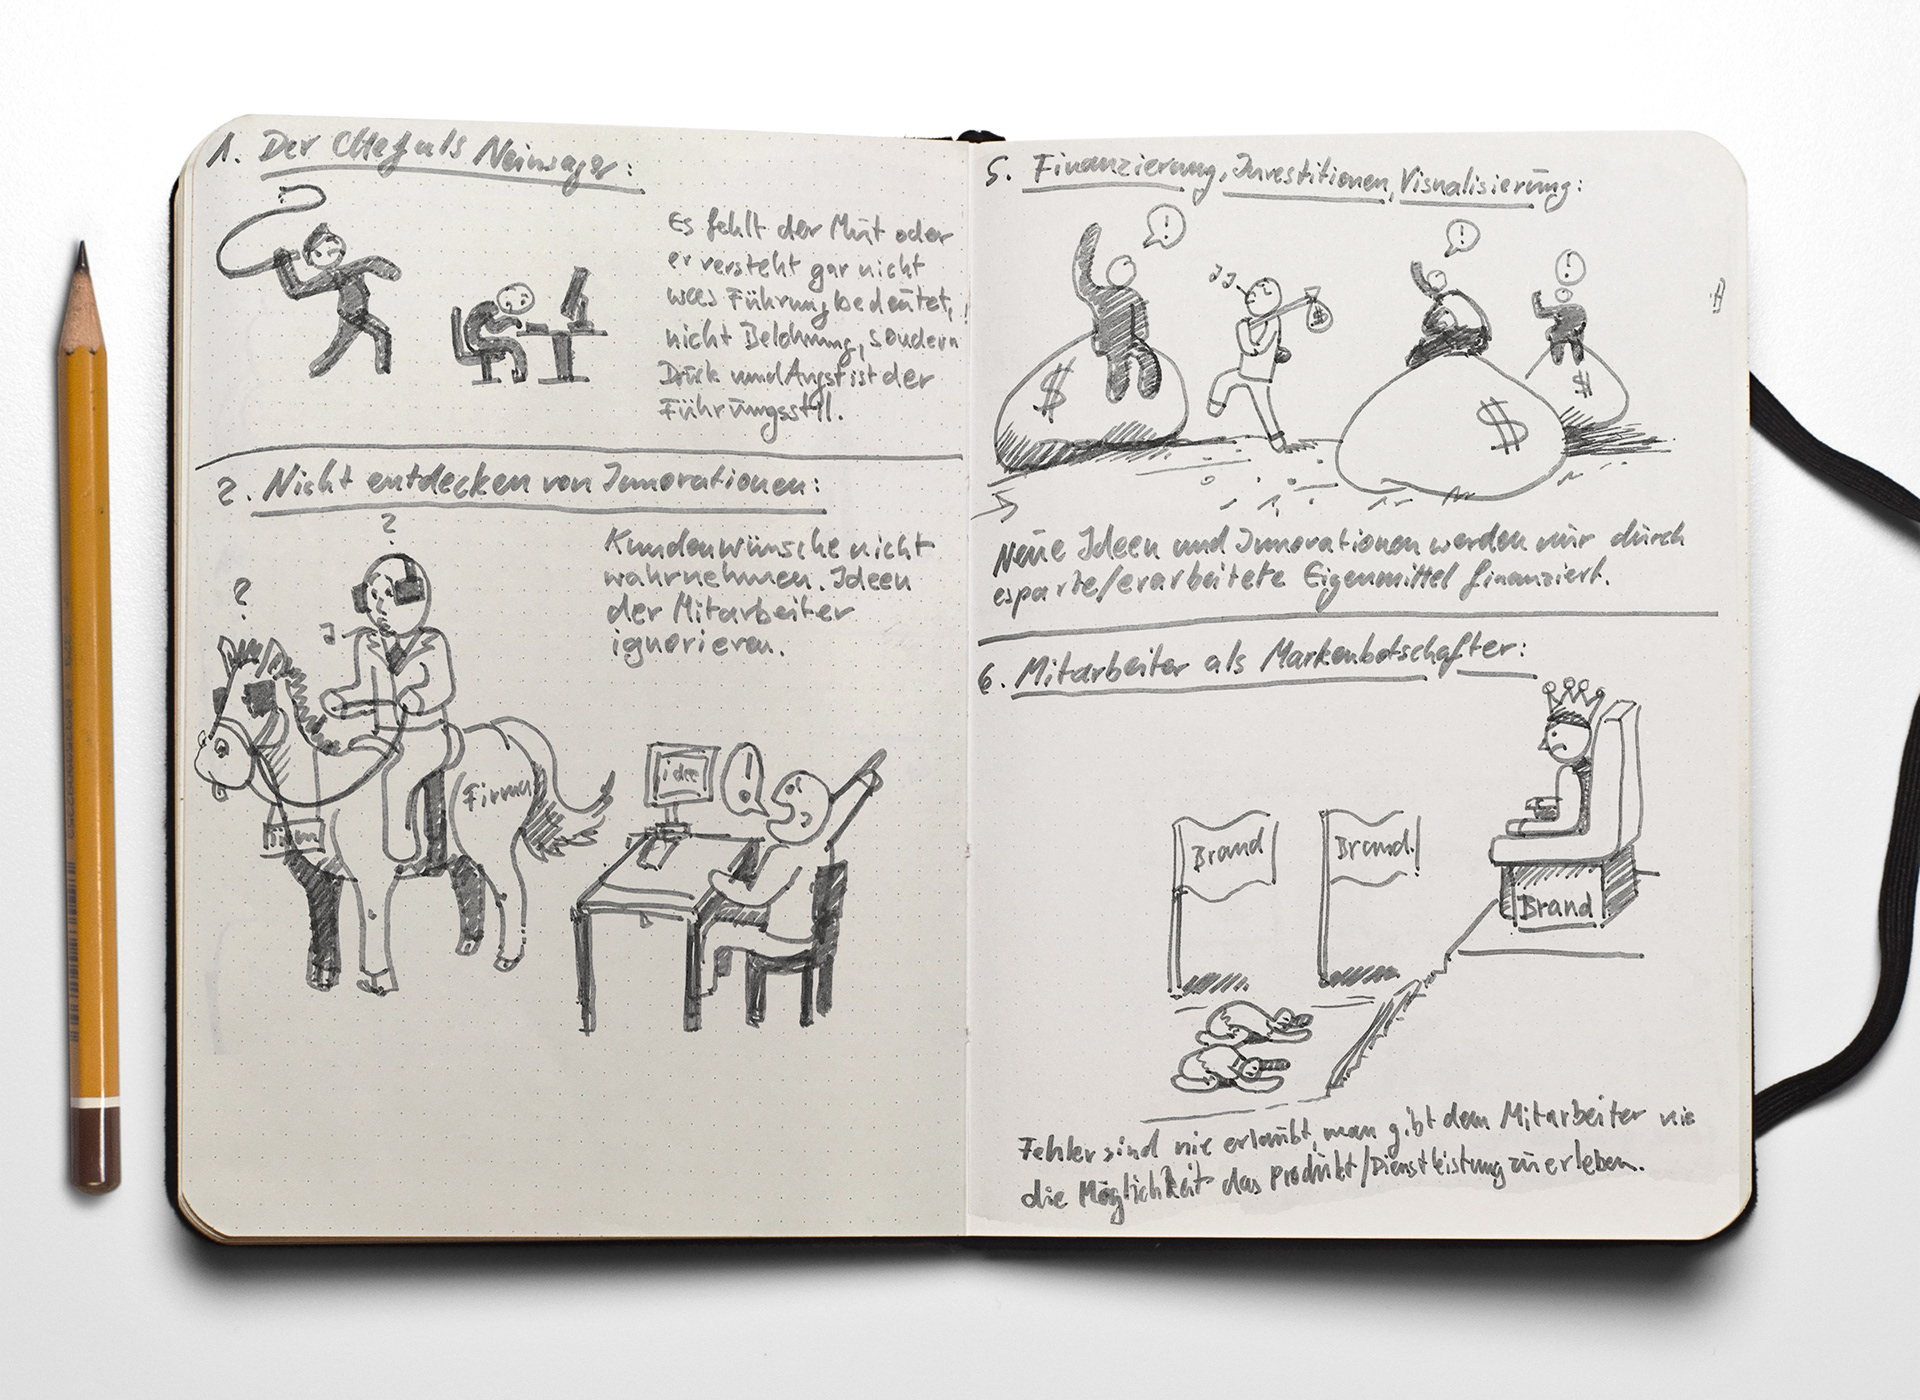 1. Der Chef als Neinsager:
Es fehlt der Mut oder
er versteht gar nicht
was Führung bedeutet,
nicht Belohnung, sondern
Druck und Angst ist der
Führungsstil.
2. Nicht entdecken von Innovationen:
?
?
Kundenwünsche nicht
wahrnehmen. Ideen
der Mitarbeiter
ignorieren.
Firma
idee
!
5. Finanzierung, Investitionen, Visualisierung:
!
!
!
$
$
$
$
Neue Ideen und Innovationen werden nur durch
esparte/erarbeitete Eigenmittel finanziert.
6. Mitarbeiter als Markenbotschafter:
Brand
Brand
Brand
Fehler sind nie erlaubt, man gibt dem Mitarbeiter nie
die Möglichkeit das Produkt/Dienstleistung zu erleben.